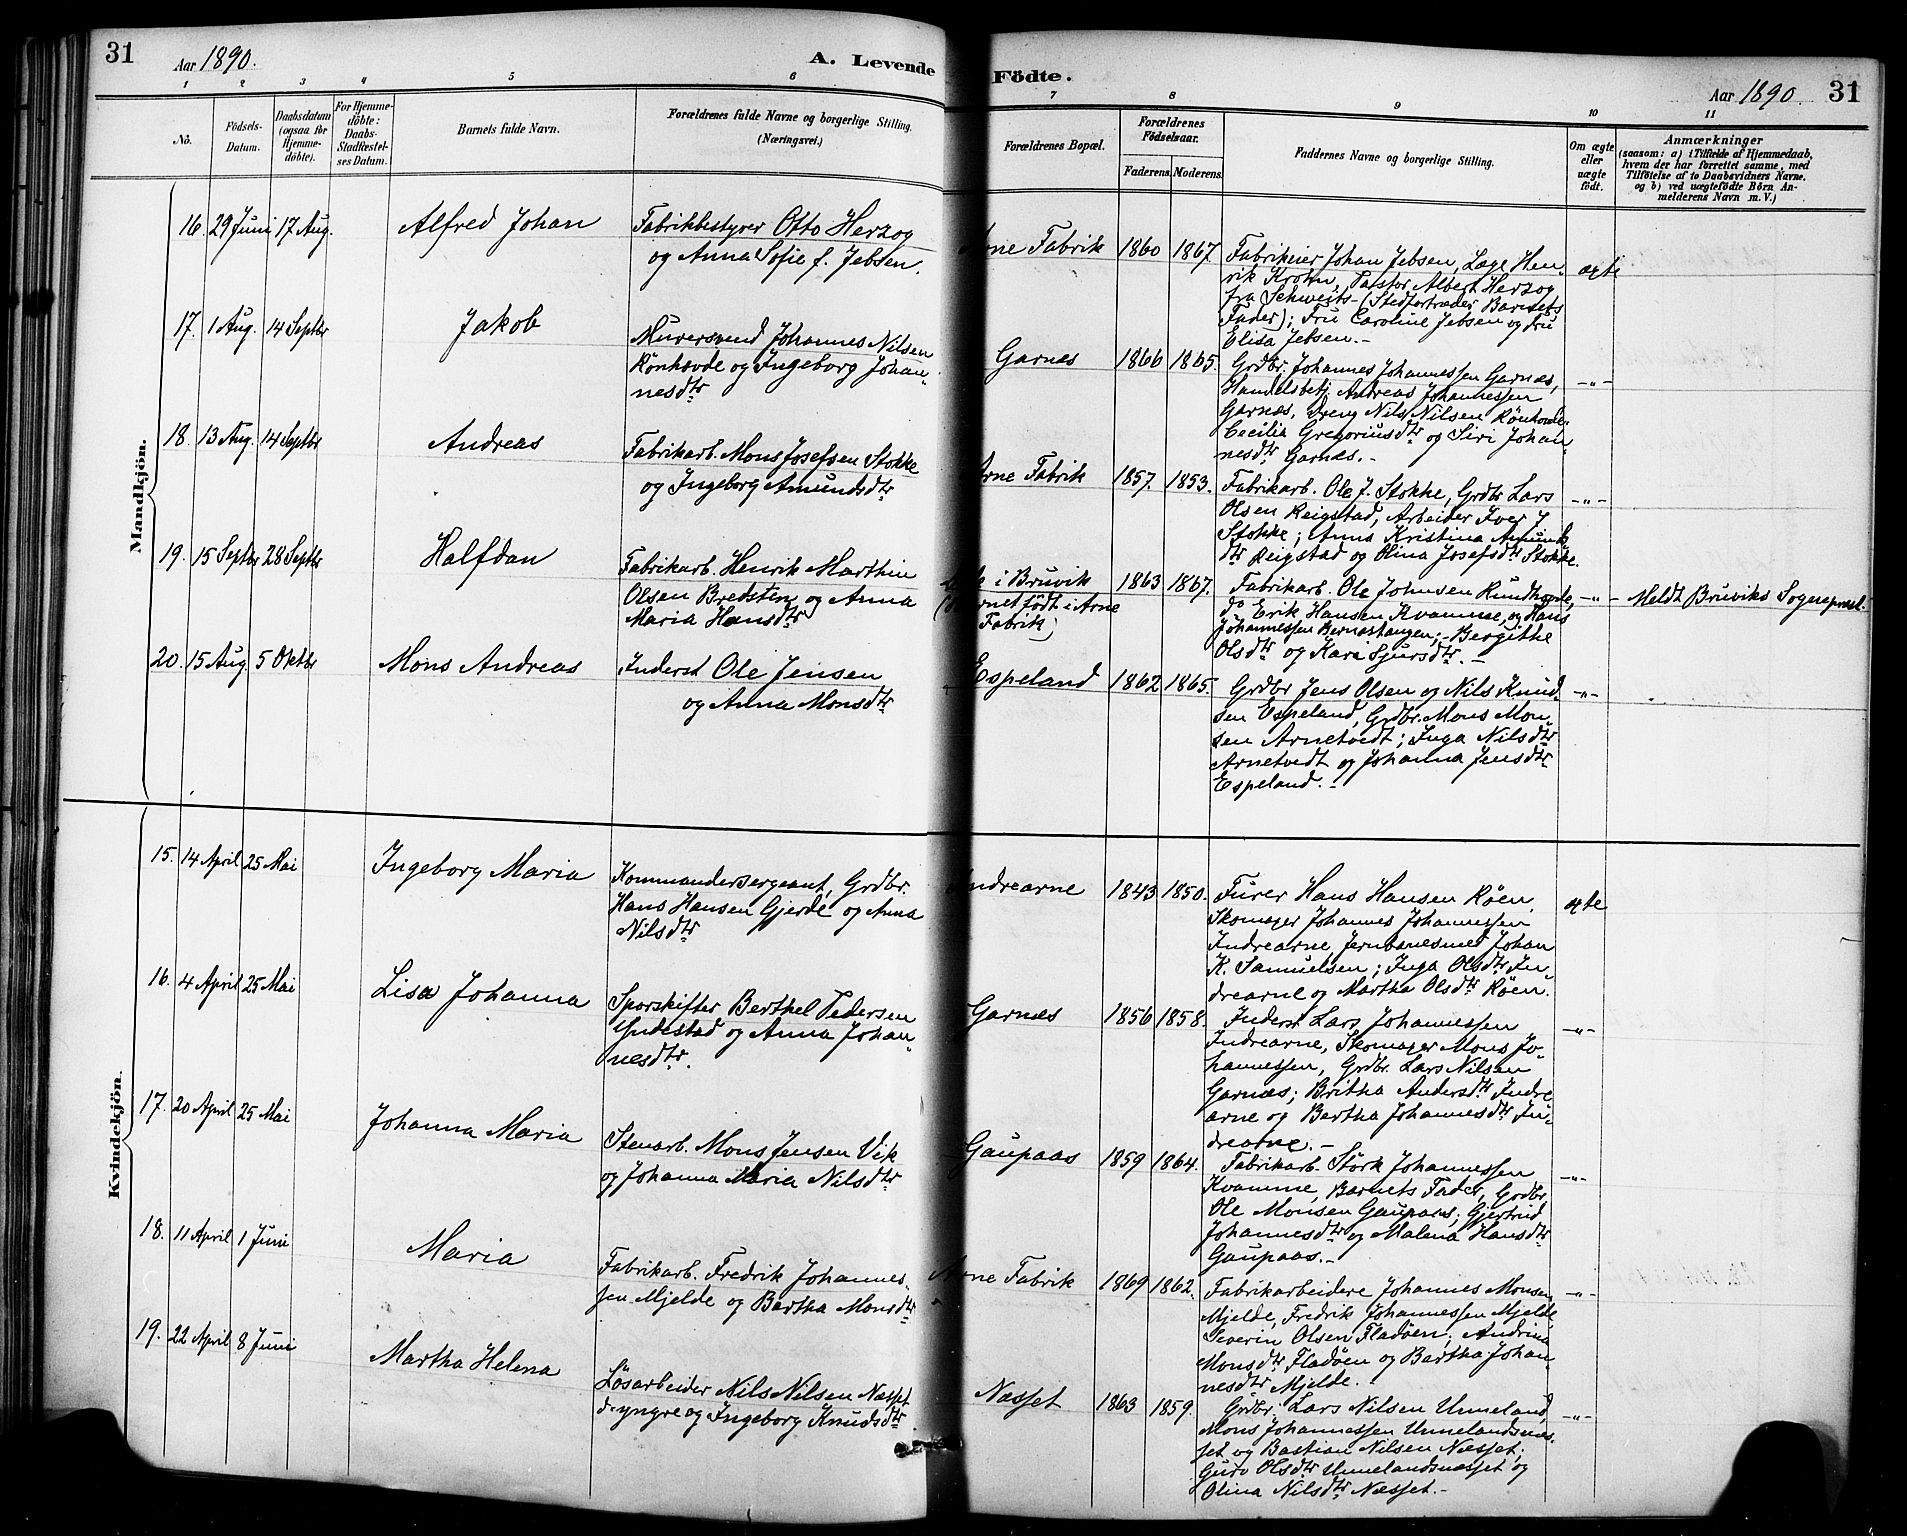 31
Aar 1890.
A. Levende
1 2 3 4 5 6
No.
Födsels-
Datum.
Daabsdatum
(ogsaa for
Hjemme-
döbte).
For Hjemme-
döbte:
Daabs-
Stadfæstel-
ses Datum.
Barnets fulde Navn.
Forældrenes fulde Navne og borgerlige Stilling.
(Næringsvei.)
Mandkjön.
16. 29 Juni 17 Aug. Alfred Johan
Fabrikbestyrer Otto Herzog
og Anna Sofie f. Jebsen.
17. 1 Aug. 14 Septbr Jakob
Murersvend Johannes Nilsen
Rönhovde og Ingeborg Johan-
nesdtr
18. 13 Aug. 14 Septbr Andreas
Fabrikarb. Mons Josefsen Stokke
og Ingeborg Amundsdtr
19. 15 Septbr 28 Septbr Halfdan
Fabrikarb. Henrik Marthin
Olsen Bredsten og Anna
Maria Hansdtr
20. 15 Aug 5 Oktbr Mons Andreas
Inderst Ole Jensen
og Anna Monsdtr
Kvindekjön.
15. 14 April 25 Mai Ingeborg Maria
Kommandersergeant, Grdbr.
Hans Hansen Gjerde og Anna
Nilsdtr
16. 4 April 25 Mai Lisa Johanna
Sporskifter Berthel Pedersen
Yndestad og Anna Johan-
nesdtr.
17. 20 April 25 Mai Johanna Maria
Stenarb. Mons Jensen Vik
og Johanna Maria Nilsdtr
18. 11 April 1 Juni Maria
Fabrikarb. Fredrik Johannes-
sen Mjelde og Bertha Monsdtr
19. 22 April 8 Juni Martha Helena
Lösarbeider Nils Nilsen Næsset
d. yngre og Ingeborg Knudsdtr
Födte.
Aar 1890. 31
7 8 9 10 11
Forældrenes Bopæl.
Forældrenes
Födselsaar.
Faderens. Moderens.
Faddernes Navne og borgerlige Stilling.
Om ægte
eller
uægte
födt.
Anmærkninger
(saasom: a) i Tilfælde af Hjemmedaab,
hvem der har forrettet samme, med
Tilföielse af to Daabsvidners Navne.
og b) ved uægtefödte Börn An-
melderens Navn m. V.)
Arne Fabrik 1860 1867. Fabrikeier Johan Jebsen, Læge Hen- ægte
rik Krohn, Pastor Albert Herzog
fra Schweits (Stedfortræder Barnets
Fader); Fru Caroline Jebsen og Fru
Elisa Jebsen.-
Garnæs 1866 1865. Grdbr. Johannes Johannessen Garnæs, -"-
Handelsbetj. Andreas Johannessen
Garnæs, Dreng Nils Nilsen Rönhovde;
Cecilia Gregoriusdtr og Siri Johan-
nesdtr Garnæs.-
Arne Fabrik 1857. 1853. Fabrikarb. Ole J. Stokke, Grdbr Lars -"-
Olsen Reigstad, Arbeider Iver J
Stokke; Anna Kristina Amunds
dtr Reigstad og Olina Josefsdtr Stokke.
i Bruvik 1863 1867. Fabrikarb. Ole Johnsen Rundhovde, -"- Meldt Bruviks Sognepræst.
(Barnet födt i Arne
Fabrik)
do Erik Hansen Kvamme, og Hans
Johannessen Bernæstangen; Bergithe
Olsdtr og Kari Sjursdtr.-
Espeland 1862 1865. Grdbr Jens Olsen og Nils Knud- -"-
sen Espeland, Grdbr. Mons Mon-
sen Arnetvedt; Inga Nilsdtr
Arnetvedt og Johanna Jensdtr
Espeland.-
Indrearne 1843 1850. Furer Hans Hansen Röen, ægte
Skomager Johannes Johannessen
Indrearne Jernbanesmed Johan
K. Samuelsen; Inga Olsdtr In-
drearne og Martha Olsdtr Röen.
Garnæs 1856 1858. Inderst Lars Johannessen -"-
Indrearne, Skomager Mons Jo-
hannessen, Grdbr. Lars Nilsen
Garnæs; Britha Andersdtr Indre
arne og Bertha Johannesdtr In-
drearne.-
Gaupaas 1859 1864. Fabrikarb. Störk Johannessen -"-
Kvamme, Barnets Fader, Grdbr.
Ole Monsen Gaupaas; Gjertrud
Johannesdtr og Malena Hansdtr
Gaupaas.-
Arne Fabrik 1869 1862. Fabrikarbeidere Johannes Monsen -"-
Mjelde, Fredrik Johannessen Mjelde
Severin Olsen Fladöen; Andrina
Monsdtr Fladöen og Bertha Johan-
nesdtr Mjelde.
Næsset 1863 1859. Grdbr. Lars Nilsen Unneland, -"-
Mons Johannessen Unnelandsnæs-
set og Bastian Nilsen Næsset;
Guro Olsdtr Unnelandsnæsset og
Olina Nilsdtr Næsset.-